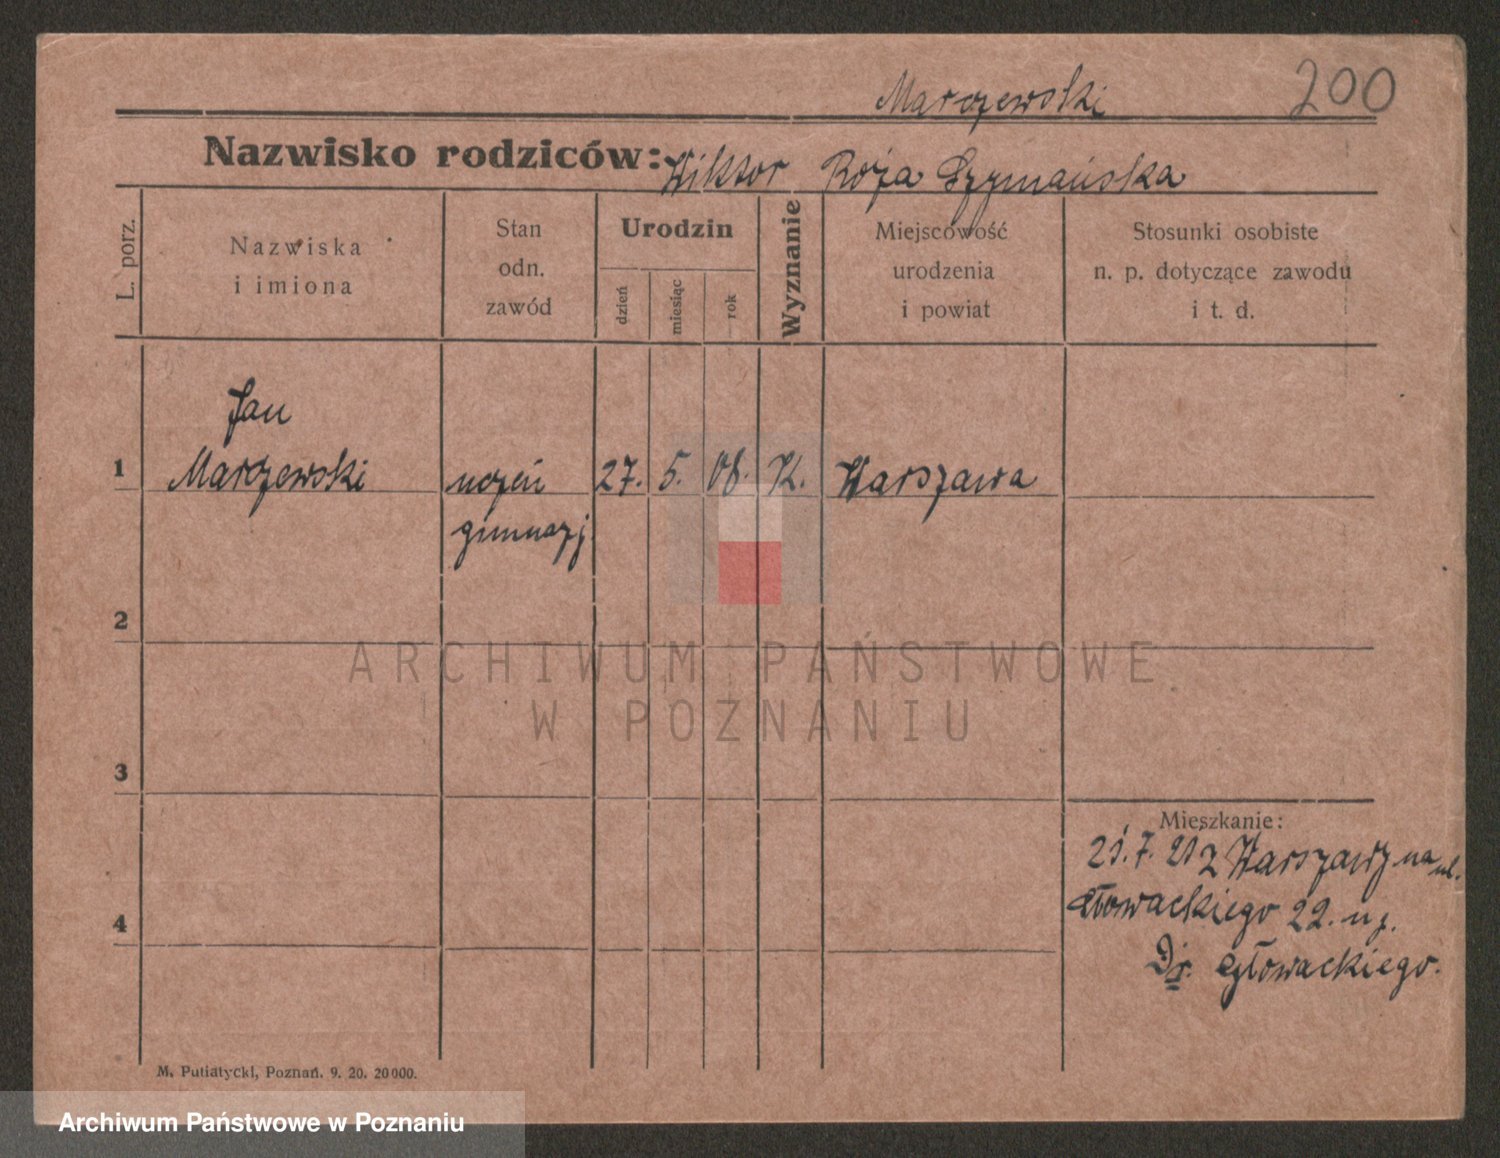 Marczewski 200
Nazwisko rodziców: Wiktor Róża Szymańska
L. porz.
Nazwiska
i imiona
Stan
odn.
zawód
Urodzin
dzień
miesiąc
rok
Wyznanie
Miejscowość
urodzenia
i powiat
Stosunki osobiste
n. p. dotyczące zawodu
i t. d.
Jan
1 Marczewski uczeń 27. 5. 08. K. Warszawa
gimnazj.
2
3
4
Mieszkanie:
21.7.21 z Warszawy na ul.
Głowackiego 22. u p.
Dr. Głowackiego.
M. Putiatycki, Poznań. 9. 20. 20000.
ARCHIWUM PAŃSTWOWE
W POZNANIU
Archiwum Państwowe w Poznaniu